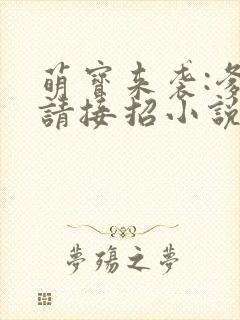 萌寶來袭:爹
請接招小說
夢殤之夢